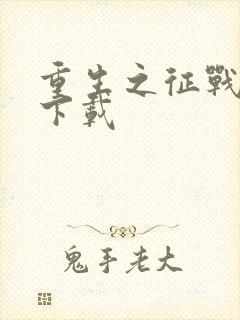 重生之征戰
下載
鬼手老大